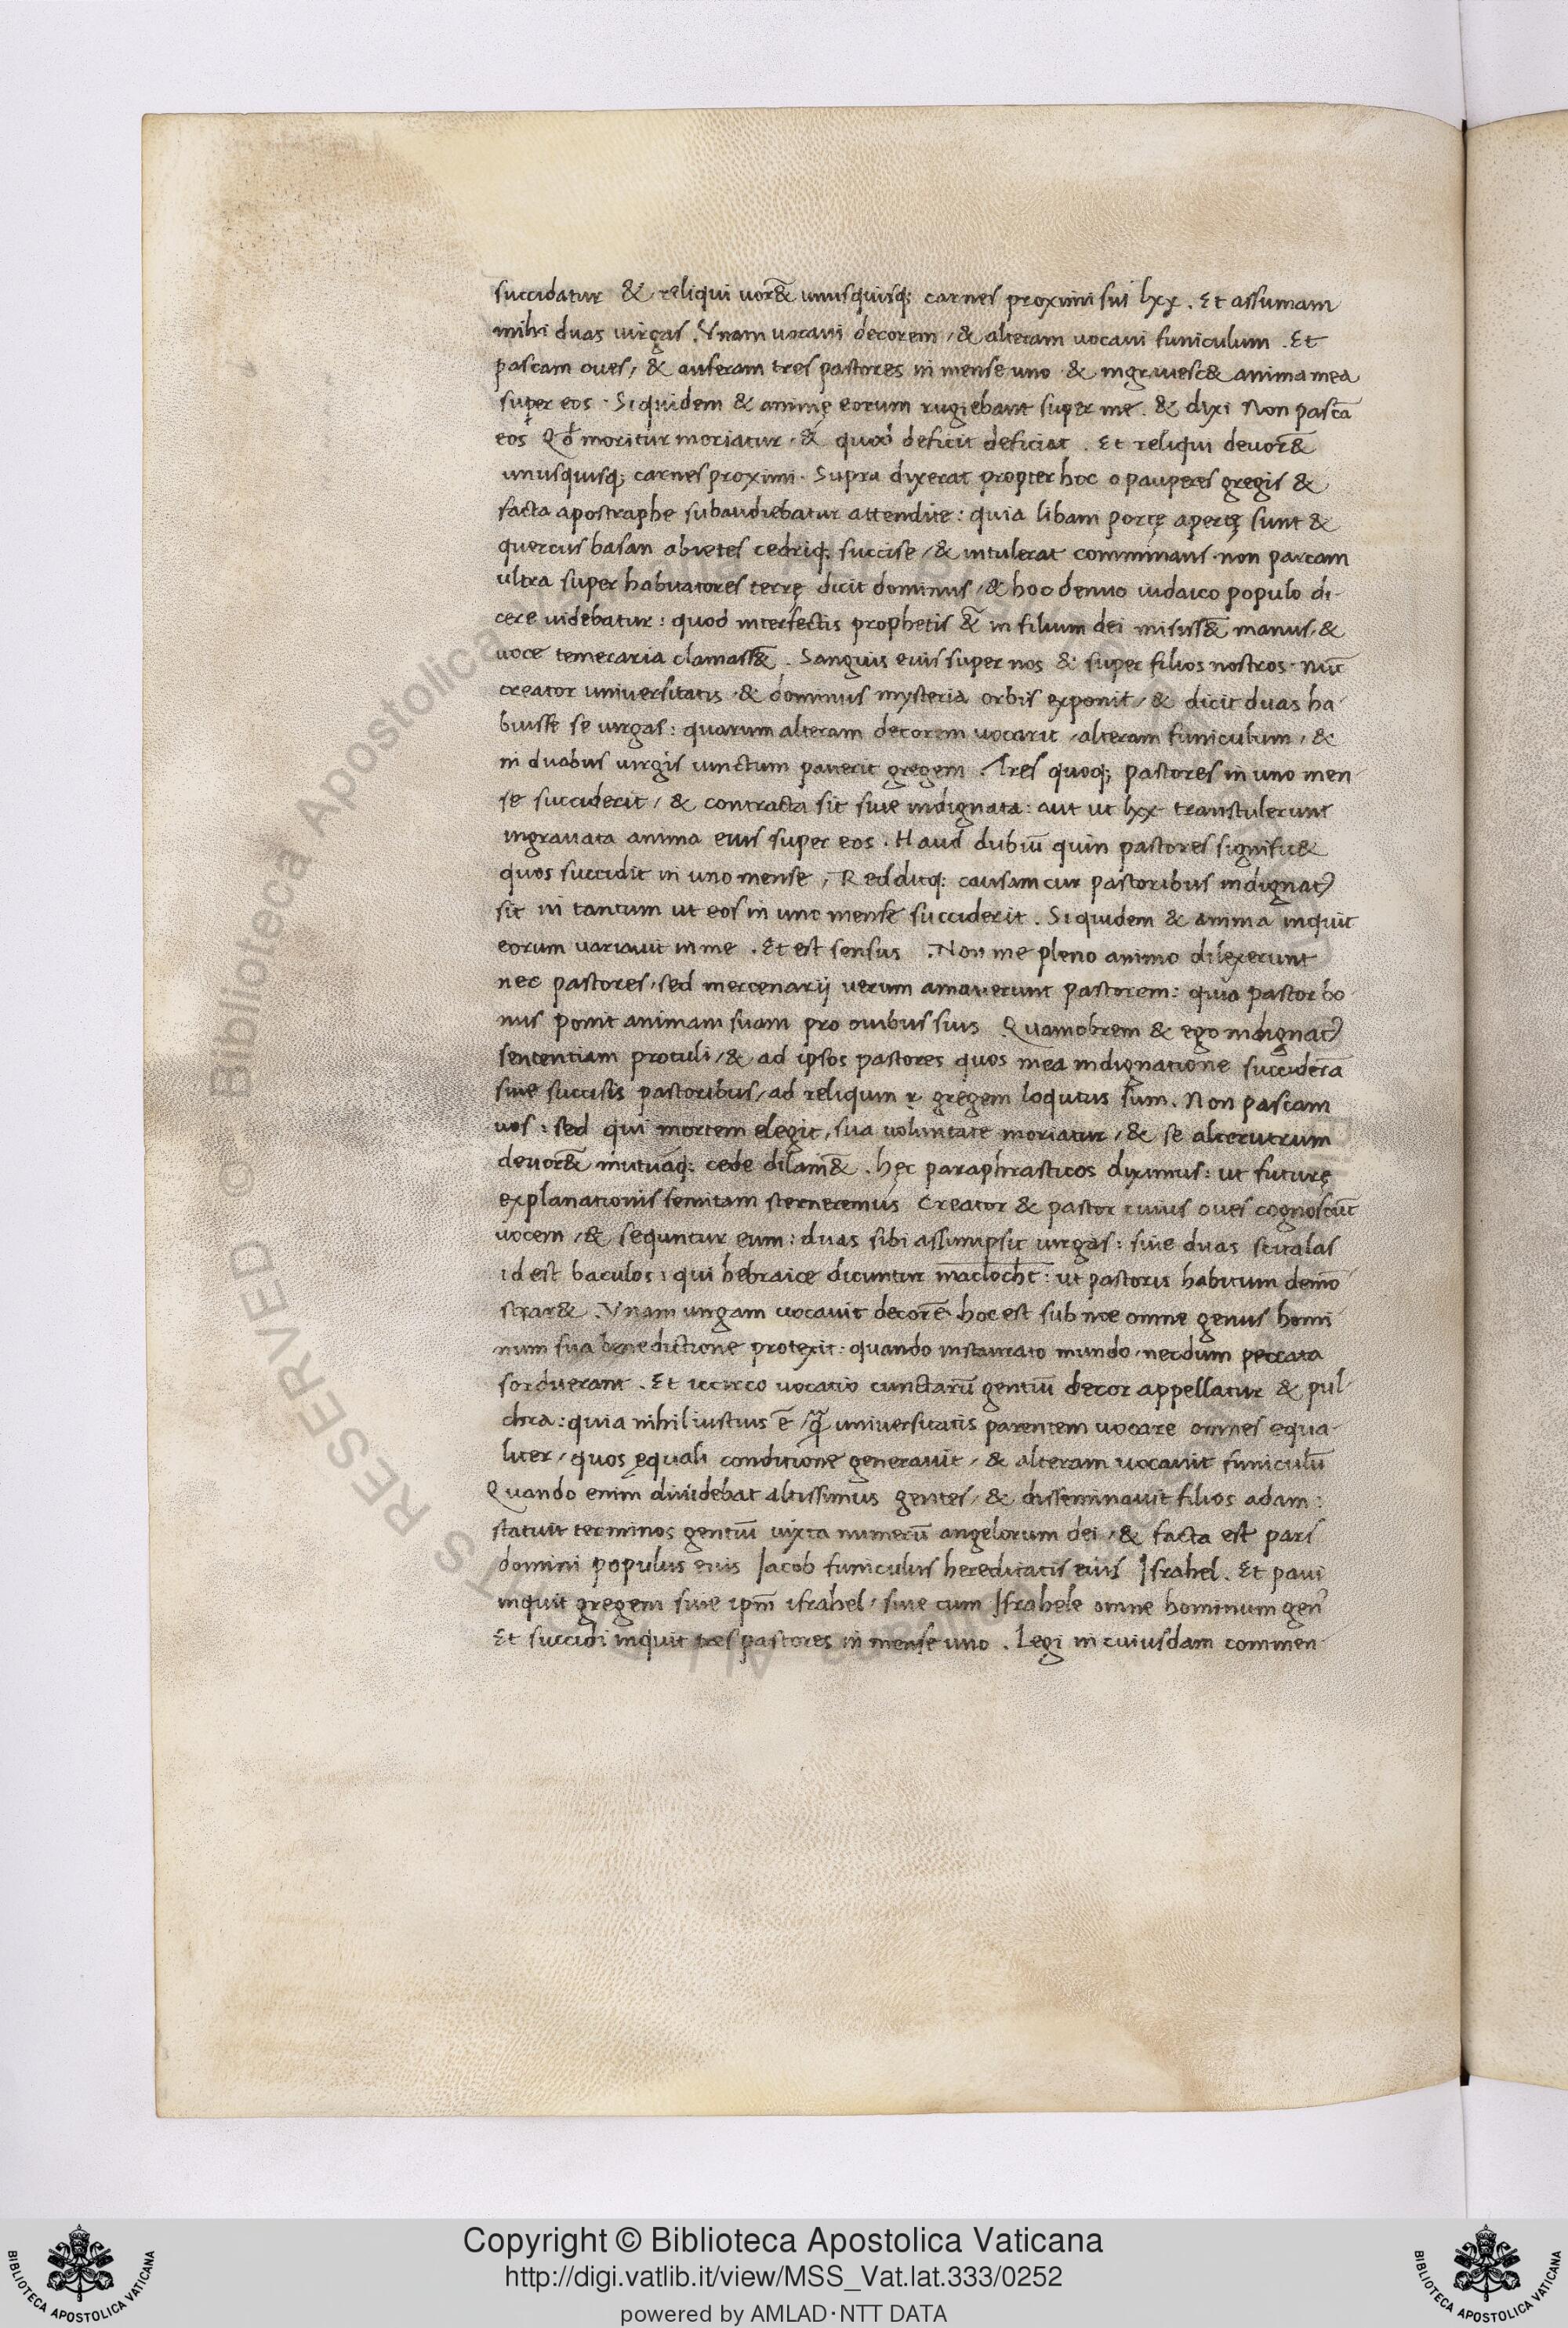 succidatur & reliqui uor&̄ unusquisq; carnes proximi sui lxx. Et assumam
mihi duas uirgas. Vnam uocaui decorem, & alteram uocaui funiculum. Et
pascam oues, & auferam tres pastores in mense uno & ingrauesc& anima mea
super eos. Siquidem & animę eorum rugiebant super me. & dixi Non pascā
eos Qđ moritur moriatur, & quod deficit deficiat. Et reliqui deuor&̄
unusquisq; carnes proximi. Supra dixerat propter hoc o pauperes gregis &
facta apostraphe subaudiebatur attendite: quia libam portę apertę sunt &
quercus basan abietes cedriq; succise, & intulerat comminans. non parcam
ultra super habitatores terrę dicit dominus, & hoc denuo iudaico populo di-
cere uidebatur: quod interfectis prophetis &̄ in filium dei misiss&̄ manus, &
uoce temeraria clamass&̄. Sanguis eius super nos & super filios nostros. nūc
creator uniuersitatis & dominus mysteria orbis exponit, & dicit duas ha-
buisse se uirgas: quarum alteram decorem uocarit, alteram funiculum, &
in duabus uirgis uinctum pauerit gregem. Tres quoq; pastores in uno men-
se succiderit, & contracta sit siue indignata: aut ut lxx transtulerunt
ingrauata anima eius super eos. Haud dubiū quin pastores signific&
quos succidit in uno mense, Redditq; causam cur pastoribus indignat᷒
sit in tantum ut eos in uno mense succiderit. Siquidem & anima inquit
eorum uariauit in me. Et est sensus. Non me pleno animo dilexerunt
nec pastores, sed mercenarij uerum amauerunt pastorem: quia pastor bo-
nus ponit animam suam pro ouibus suis Quamobrem & ego indignat᷒
sententiam protuli, & ad ipsos pastores quos mea indignatione succiderā
siue succisis pastoribus, ad reliquum gregem loqutus sum. Non pascam
uos: sed qui mortem elegit, sua uoluntate moriatur, & se alterutrum
deuor&̄ mutuaq; cede dilani&̄. hęc paraphrasticos diximus: ut futurę
explanationis semitam sterneremus Creator & pastor cuius oues cognoscūt
uocem, & sequntur eum: duas sibi assumpsit uirgas: siue duas scitalas
id est baculos: qui hebraice dicuntur maclocht: ut pastoris habitum demō-
strar&. Vnam uirgam uocauit decorē. hoc est sub noe omne genus homi
num sua benedictione protexit: quando instaurato mundo, necdum peccata
sorduerant. Et iccirco uocatio cunctarū gentiū decor appellatur & pul-
chra: quia nihil iustius ē, q̄ uniuersitatis parentem uocare omnes equa-
liter, quos ęquali conditione generauit, & alteram uocauit funiculū
Quando enim diuidebat altissimus gentes, & disseminauit filios adam:
statuit terminos gentiū iuxta numerū angelorum dei, & facta est pars
domini populus eius Jacob funiculus hereditatis eius Jsrahel. Et paui
inquit gregem siue ipm̄ israhel, siue cum Jsrahele omne hominum gen᷒
Et succidi inquit tres pastores in mense uno. Legi in cuiusdam commen-
Copyright © Biblioteca Apostolica Vaticana
http://digi.vatlib.it/view/MSS_Vat.lat.333/0252
powered by AMLAD·NTT DATA